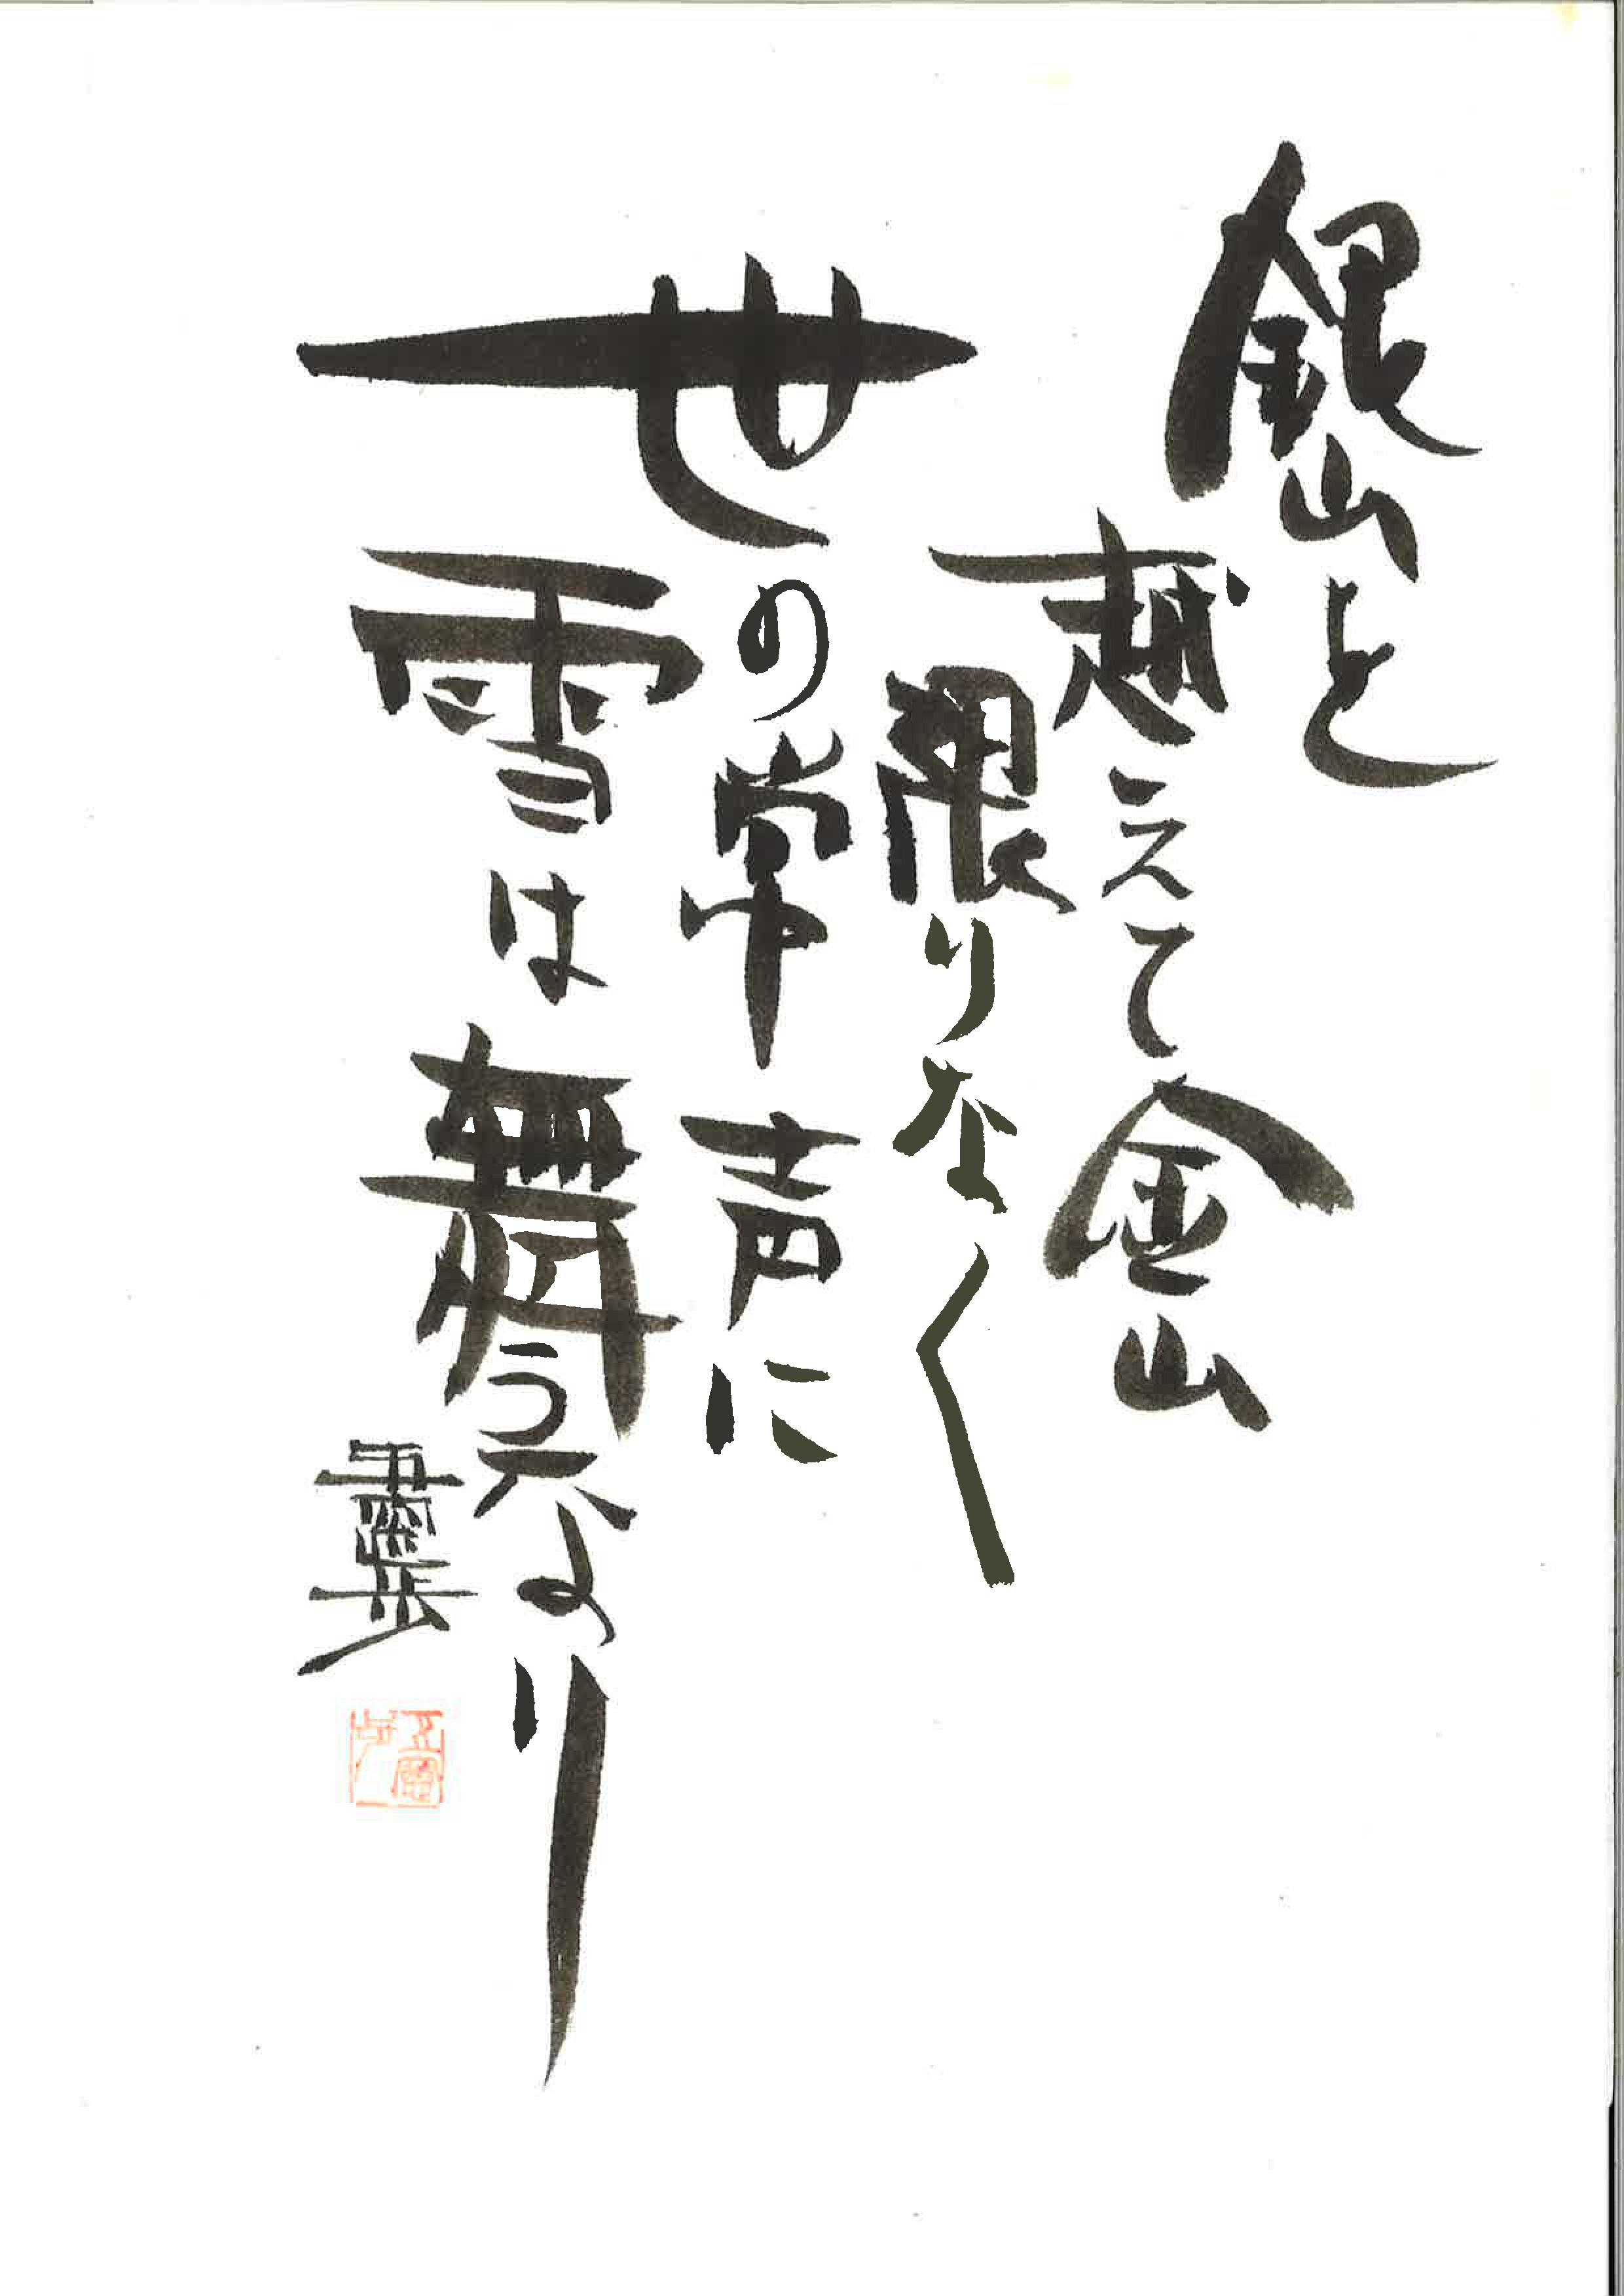 銀山を
越えて金山
限りなく
世の常声に
雪は舞うなり